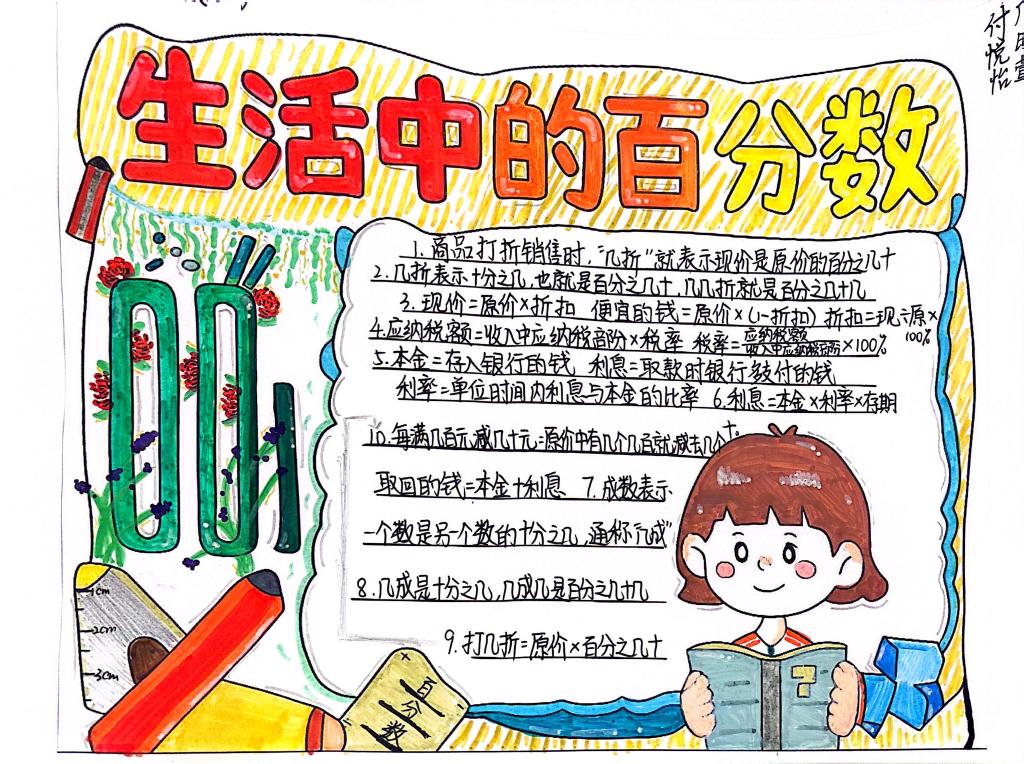 付悦怡
生活中的百分数
1.商品打折销售时,“几折”就表示现价是原价的百分之几十
2.几折表示十分之几,也就是百分之几十,几几折就是百分之几十几
3.现价=原价×折扣 便宜的钱=原价×(1-折扣) 折扣=现÷原×100%
4.应纳税额=收入中应纳税部份×税率 税率=应纳税额/收入中应纳税部份×100%
5.本金=存入银行的钱 利息=取款时银行支付的钱
利率=单位时间内利息与本金的比率 6.利息=本金×利率×存期
10.每满几百元减几十元=原价中有几个几百就减去几个十
取回的钱=本金+利息 7.成数表示
一个数是另一个数的十分之几,通称“几成”
8.几成是十分之几,几成几是百分之几十几
9.打几折=原价×百分之几十
1cm
2cm
3cm
百
分
数
?